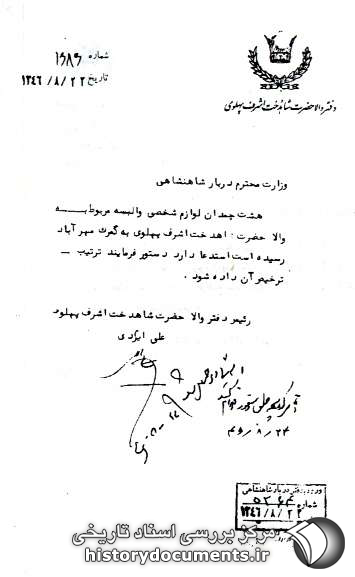 شماره ۱۶۸۶
تاریخ ۱۳۴۶/۸/۲۲
دفتر والاحضرت شاهدخت اشرف پهلوی
وزارت محترم دربار شاهنشاهی
هشت چمدان لوازم شخصی والبسه مربوط به
والا حضرت شاهدخت اشرف پهلوی به گمرک مهرآباد
رسیده است استدعا دارد دستور فرمایند ترتیب
ترخیص آن داده شود .
رئیس دفتر والا حضرت شاهدخت اشرف پهلوی
علی ایزدی
۴۶/۸/۲۴
ورود بدفتر دربار شاهنشاهی
شماره ۵۲۶۴
۱۳۴۶/۸/۲۲
مرکز بررسی اسناد تاریخی
historydocuments.ir